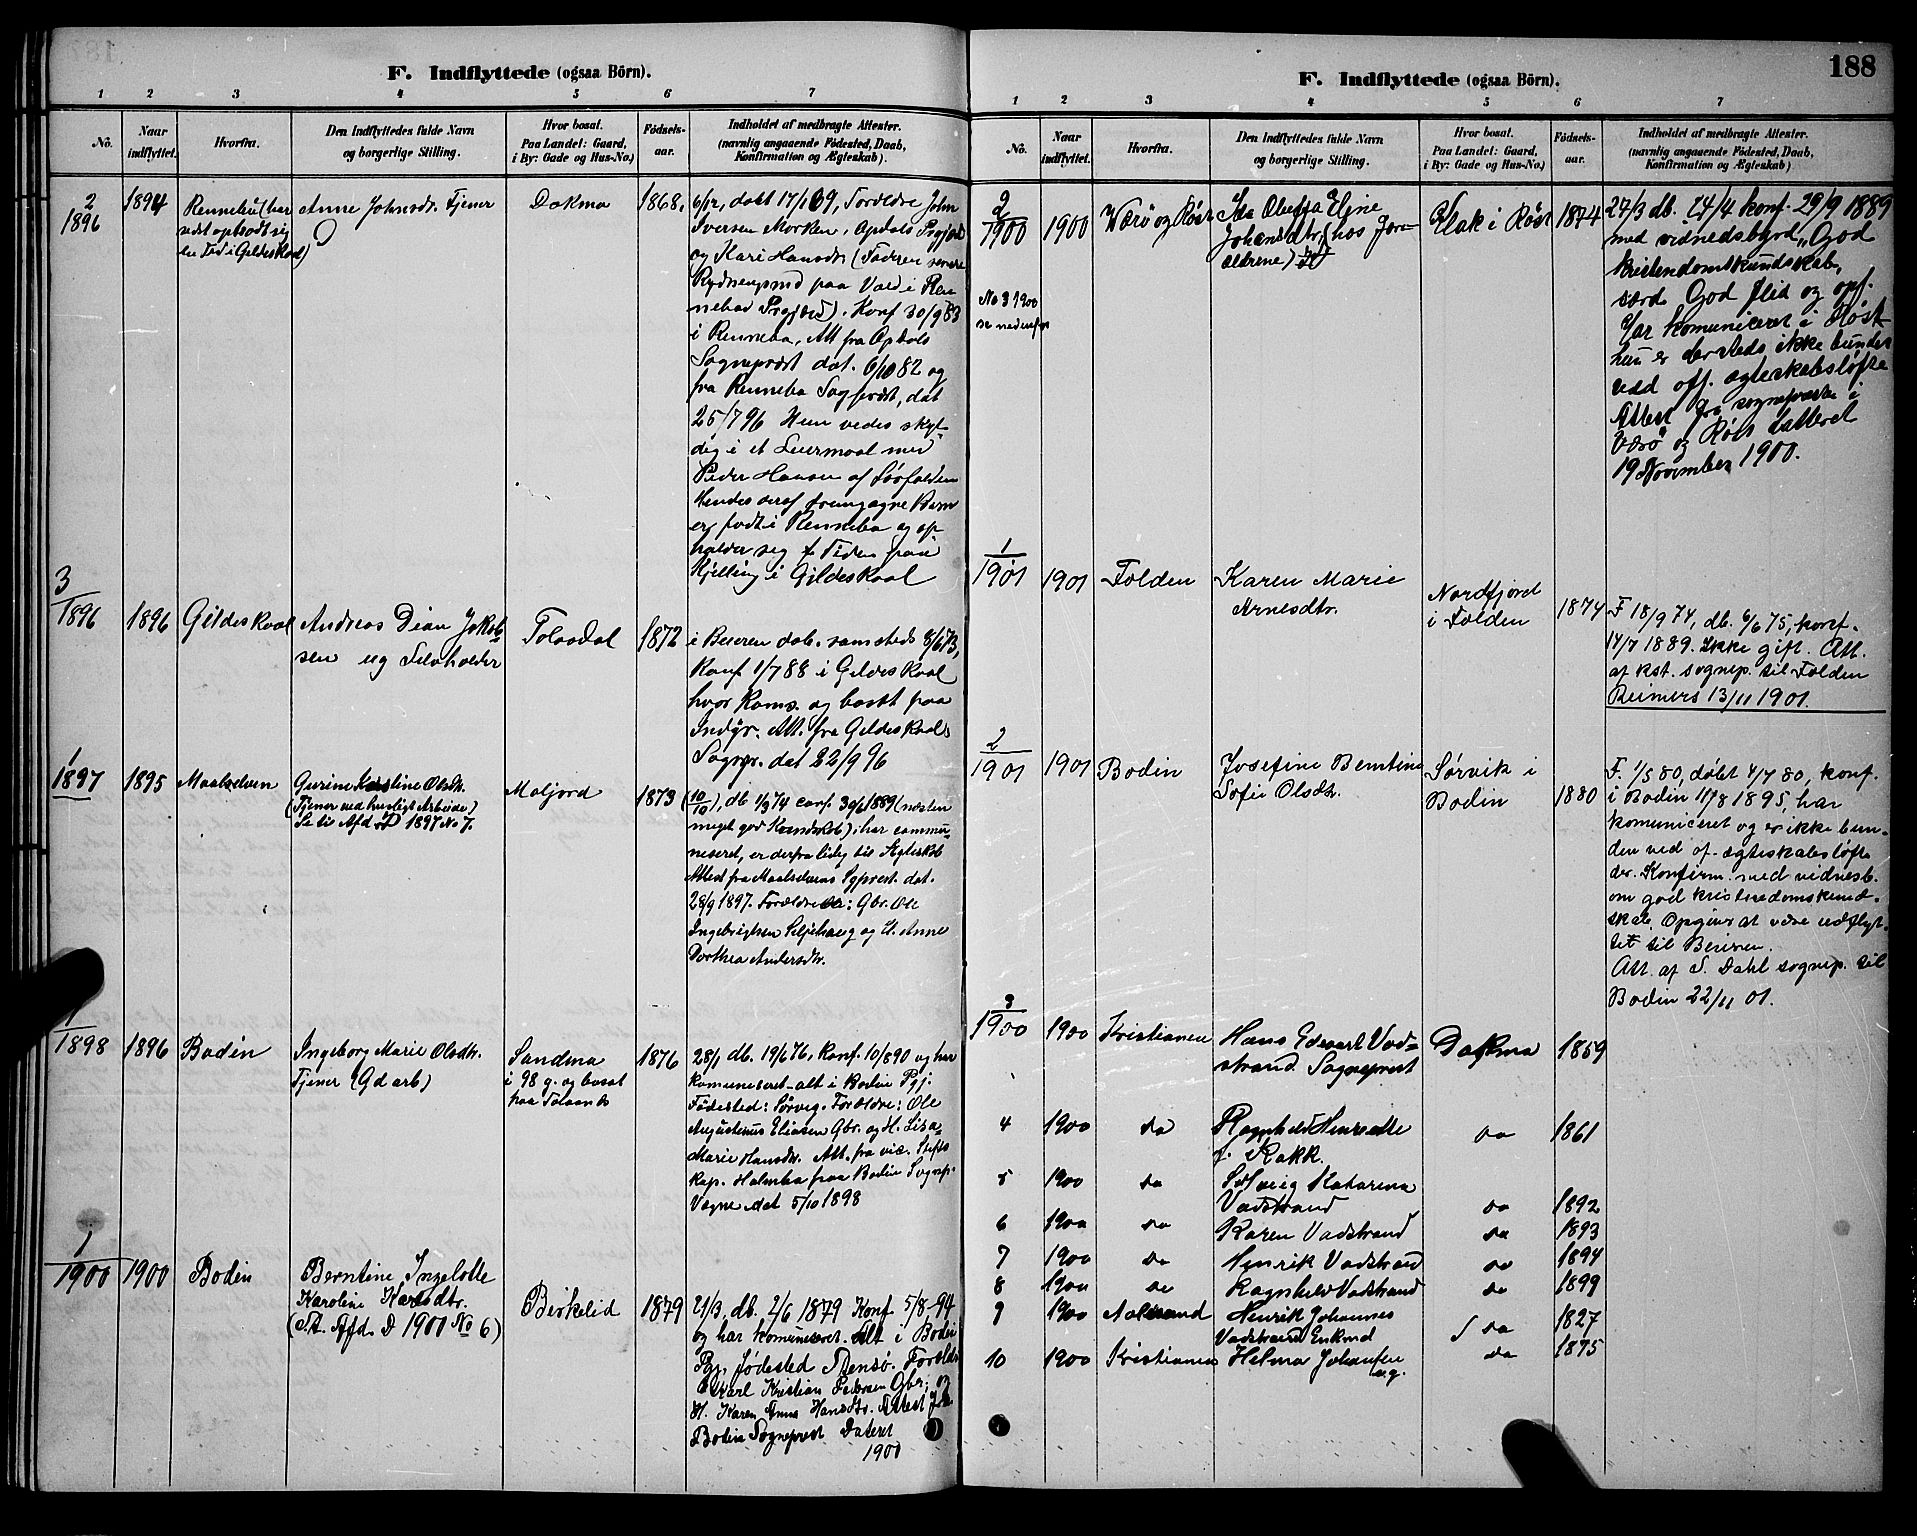 F. Indflyttede (ogsaa Börn).
1 2 3 4 5 6 7
No.
Naar indflyttet.
Hvorfra.
Den Indflyttedes fulde Navn
og borgerlige Stilling.
Hvor bosat.
Paa Landet: Gaard,
i By: Gade og Hus-No.)
Födsels-
aar.
Indholdet af medbragte Attester.
(navnlig angaaende Födested, Daab,
Konfirmation og Ægteskab).
2
1896
1894
Rennebu (har
sidst opholdt sig
en Tid i Gildeskaal)
Anne Johnsdr. Tjener
Dokmo
1868.
6/12, døbt 17/1 69, Forældre John
Iversen Morken, Opdals Prgjæld
og Kari Hansdr (Faderen senere
Rydningsmd paa Vold i Ren
nebu Prgjæld). Konf 30/9 83
i Rennebu, Att fra Opdals
Sognepræst dat. 6/10 82 og
fra Rennebu Sogpræst, dat
25/7 96 Hun vedes skyl-
dig i et Leiermaal med
Peder Hansen af Sørfolden
Hendes deraf fremgagne Barn
er født i Rennebu og op-
holder sig f. Tiden paa
Kjelling i Gildeskaal
3
1896
1896
Gildeskaal
Andreas Dian Jakob
sen ug Selvholder
Tollaadal
1872
i Beieren døb. samsteds 8/6 73,
Konf 1/7 88 i Gildeskaal
hvor Koms. og bosat paa
Indyr. Att. fra Gildeskaal
Sogpr. dat 22/9 96
1
1897
1895
Maalselven
Gurine Karoline Olsdr.
(Tjener ved husligt Arbeide)
Se lit Afd D 1897 No 7.
Moljord
1873
(10/10), db 1/3 74 conf. 30/6 1889 (næsten
meget god Kundskab); har commu-
niceret, er derfra ledig til Ægteskab
Attest fra Maalselvens Sgprest. dat.
28/9 1897. Forældre: Gbr. Ole
Ingebrigtsen Seljehaug og H. Anne
Dorthea Andersdtr.
1
1898
1896
Bodin
Ingeborg Marie Olsdtr.
Tjener (Gdarb)
Sandmo
i 98 g. og bosat
paa Tolaanes
1876
28/1 db. 19/6 76. Konf. 10/8 90 og har
komuniseret - alt i Bodin Pgj.
Fødested: Sørvig. Forældre: Ole
Augustinus Eliasen Gbr. og H. Lisa
Marie Hansdr. Att. fra vic. Stifts
kap. Holmboe paa Bodin Sognep.
Vegne dat 5/10 1898
1
1900
1900
Bodin
Berntine Ingelotte
Karoline Karlsdtr.
(Se. Afd. D 1900 No 6)
Birkelid
1879
21/3, db. 2/6 1879 Konf 5/8-94
og har komuniceret. Alt i Bodin
Pgj. fødested Stensø. Foreldr
Karl Kristian Pedersen Gbr. og
H. Karen Anna Hansdtr. Attest fra
Bodin Sogneprest Dateret
1900
188
F. Indflyttede (ogsaa Börn).
1 2 3 4 5 6 7
No.
Naar indflyttet.
Hvorfra.
Den Indflyttedes fulde Navn
og borgerlige Stilling.
Hvor bosat.
Paa Landet: Gaard,
i By: Gade og Hus-No.)
Födsels-
aar.
Indholdet af medbragte Attester.
(navnlig angaaende Födested, Daab,
Konfirmation og Ægteskab)
2
1900
1900
Værø og Røst
Ida Oluffa Eline
Johansdtr, (hos For-
ældrene)
Klak i Røst
1874
27/3 db. 24/4 konf. 29/9 1889
med vidnedsbyrd "God
kristendomskundskab,
særd. God flid og opf.
Har komuniceret i Røst
hun er dersteds ikke bunden
ved off. ægteskabsløfte
Attest fra sognepræsten i
Værø og Røst datteret
19 November 1900.
No 3 1900
se nedenfor
1
1901
1901
Folden
Karen Marie
Arnesdtr.
Nordfjord
i Folden
1874
F 18/9 74, db. 6/6 75, konf.
14/7 1889. Ikke gift. Att.
af kst. sognep. til Folden
Reimers 13/11 1901.
2
1901
1901
Bodin
Josefine Berntine
Sofie Olsdtr.
Sørvik i
Bodin
1880
F. 1/5 80, døbt 4/7 80, konf.
i Bodin 11/8 1895, har
komuniceret og er ikke bun-
den ved of. ægteskabsløfte
der. Konfirm. med vidnesb.
om god kristendomskund-
skab. Opgives at være udflyt-
tet til Beieren.
Att. af S. Dahl sognep. til
Bodin 22/11 01.
3
1900
1900
Kristianssu
Hans Edvart Vad-
strand. Sogneprest
Dokmo
1859
4 1900 do Ragnhild Henreette do 1861
f. Rakk.
5 1900 do Solveig Katarina
Vadstrand do 1892
6 1900 do Karen Vadstrand do 1893
7 1900 do Henrik Vadstrand do 1894
8 1900 do Ragnhild Vadstrand do 1899
9 1900 Henrik Johannes
Vadstrand Enkmd do 1827
10 1900 Kristianssu Helma Johansen do 1875
ug.